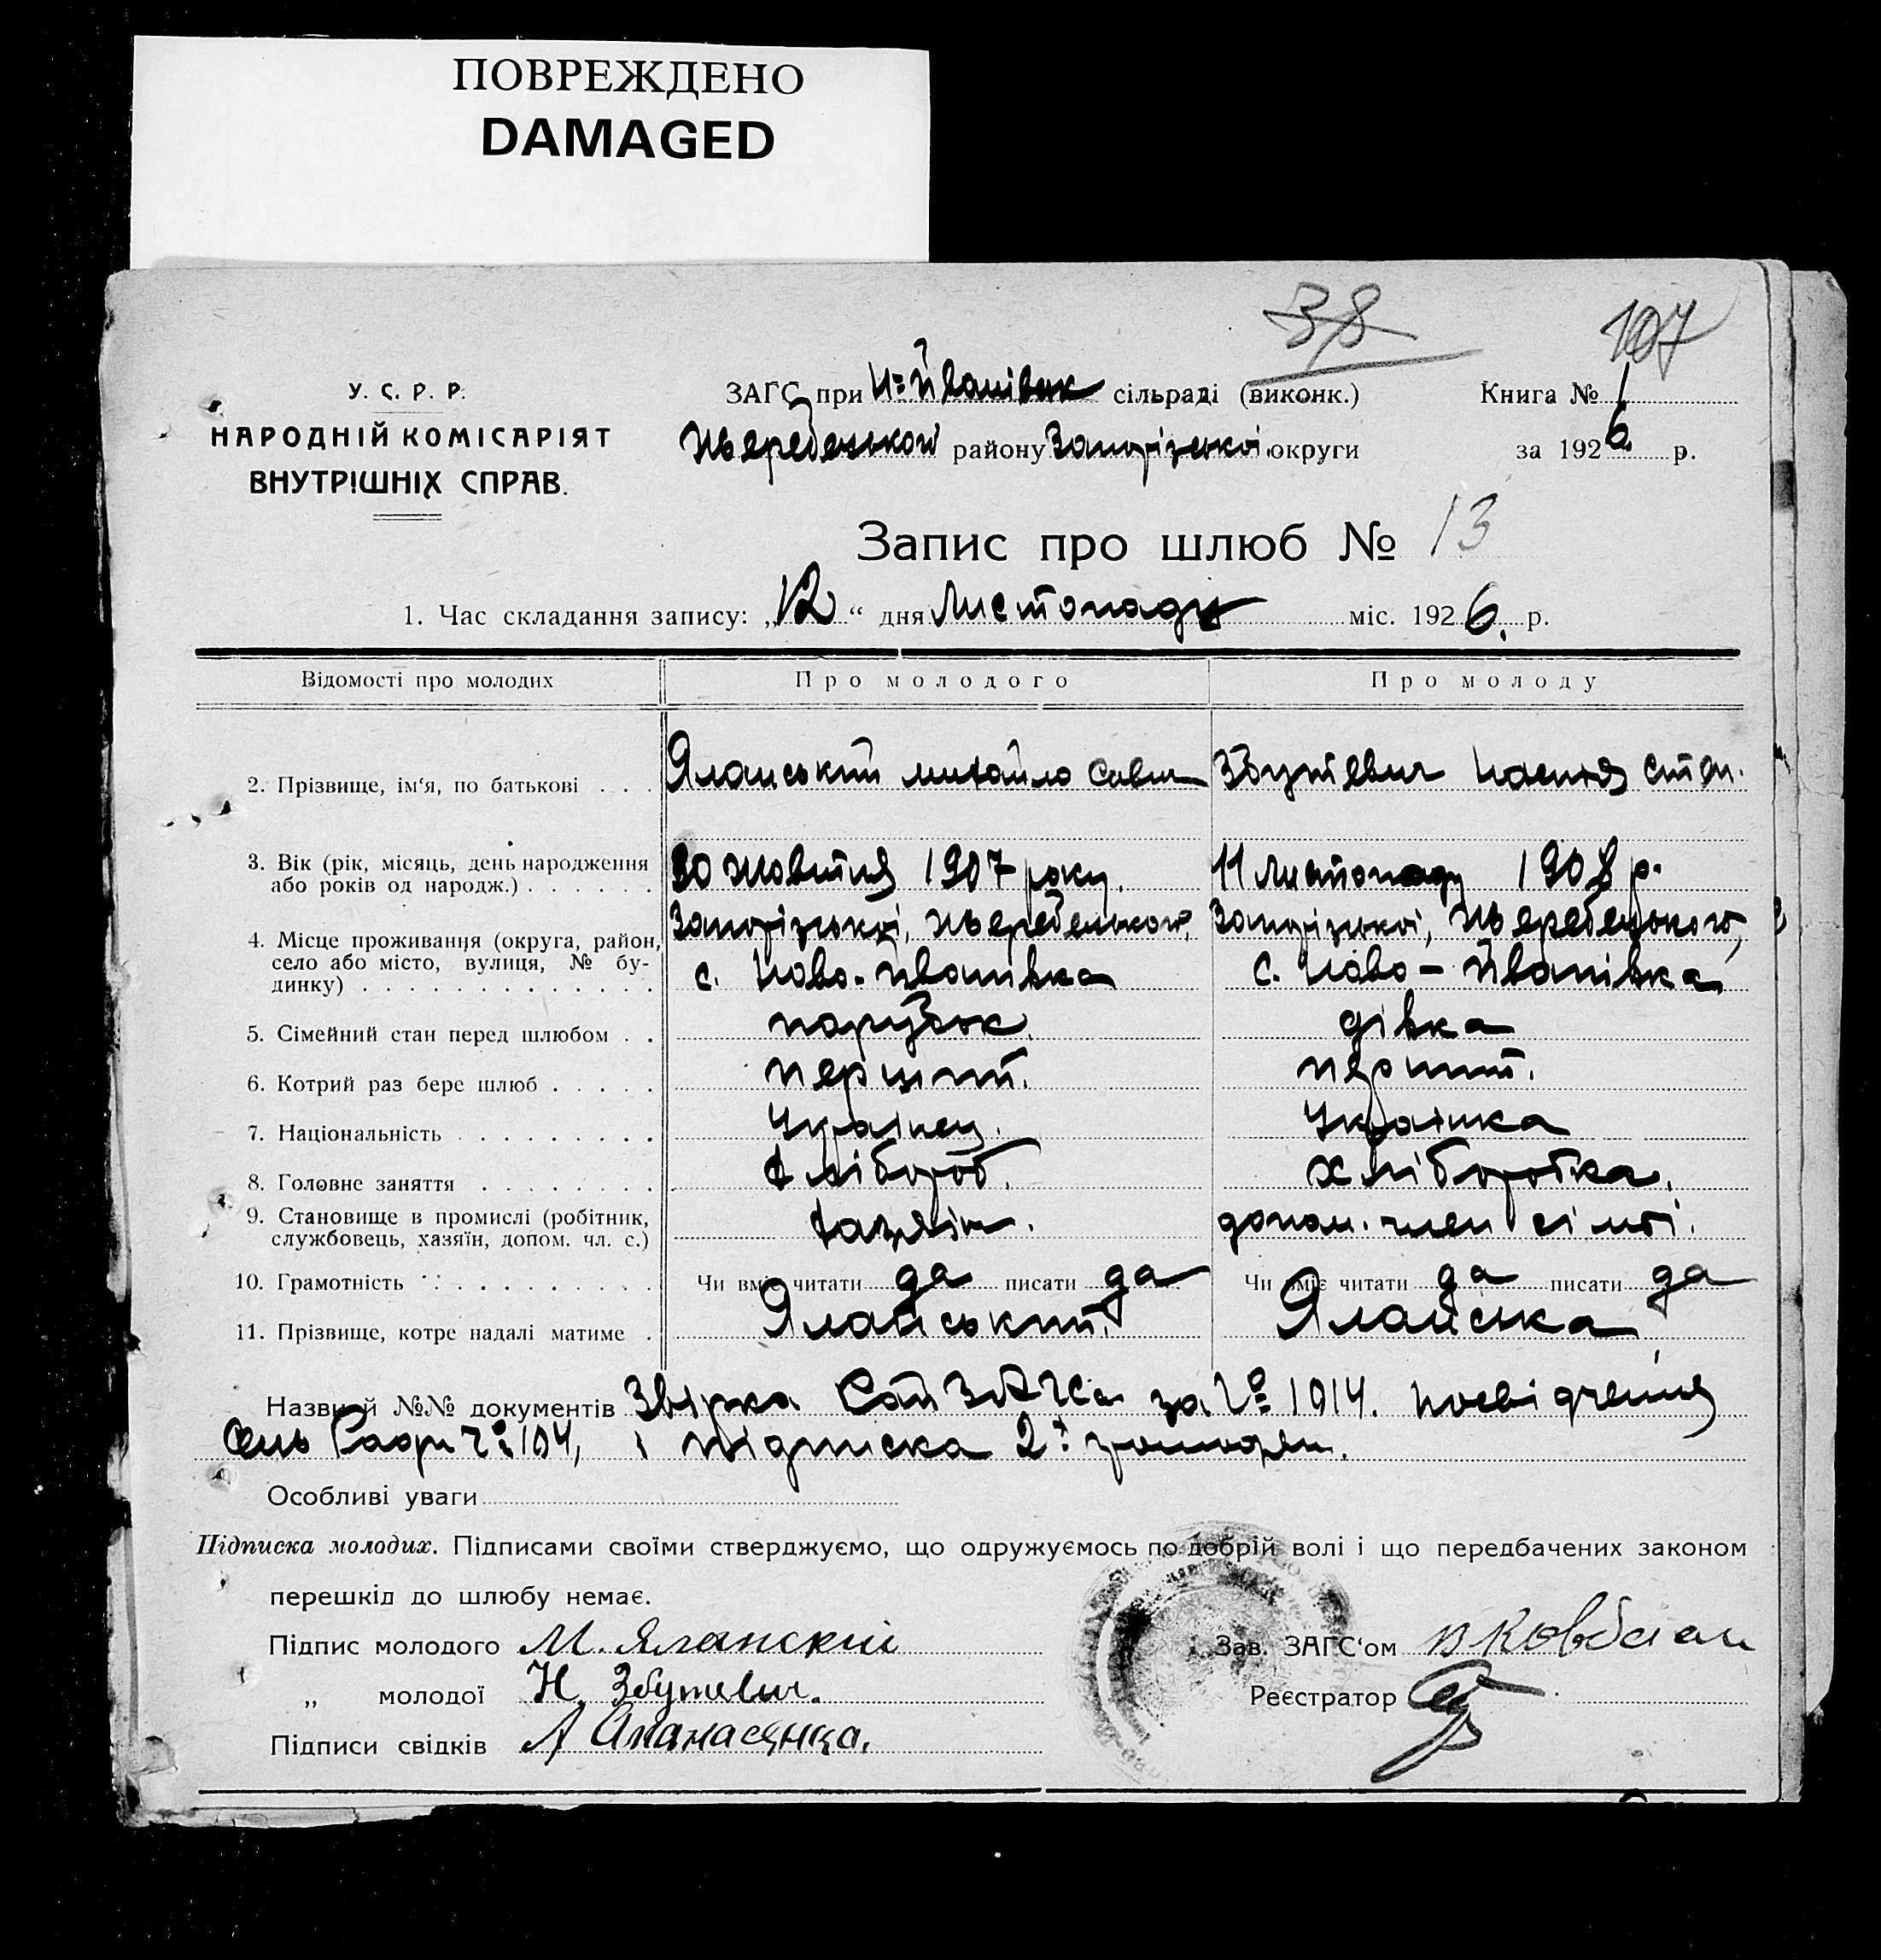 ПОВРЕЖДЕНО
DAMAGED
38
107
У. С. Р. Р.
НАРОДНІЙ КОМІСАРІЯТ
ВНУТРІШНІХ СПРАВ.
ЗАГС при Н-Йванівк сільраді (виконк.)
Жеребецького району Запорізької округи
Книга № 1
за 1926 р.
Запис про шлюб № 13
1. Час складання запису: „12“ дня Листопаду міс. 1926. р.
Відомості про молодих
Про молодого
Про молоду
2. Прізвище, ім‘я, по батькові . . .
Яланський Михайло Савич
Збутевич Настя Степ.
3. Вік (рік, місяць, день народження
або років од народж.) . . . . . .
30 Жовтня 1907 року.
11 Листопаду 1908 р.
4. Місце проживання (округа, район,
село або місто, вулиця, № бу-
динку) . . . . . . . . . . . . .
Запорізької, Жеребецького,
с. Ново-Йванівка
Запорізької, Жеребецького,
с. Ново-Йванівка
5. Сімейний стан перед шлюбом . .
парубок.
дівка
6. Котрий раз бере шлюб . . . . .
перший.
перший.
7. Національність . . . . . . . . .
Українец.
Українка
8. Головне заняття . . . . . . . .
Хлібороб.
Хліборобка.
9. Становище в промислі (робітник,
службовець, хазяїн, допом. чл. с.)
хазяїн.
допом. член сімї.
10. Грамотність . . . . . . . . . .
Чи вміє читати да писати да
Чи вміє читати да писати да
11. Прізвище, котре надалі матиме .
Яланський.
Яланська
Назви й №№ документів за № 1914. Посвідчення
Сель Ради № 104, і підписка 2х
Особливі уваги
Підписка молодих. Підписами своїми стверджуємо, що одружуємось по добрій волі і що передбачених законом
перешкід до шлюбу немає.
Підпис молодого М. Яланский
„ молодої Н. Збутевич.
Підписи свідків А Апанасенка.
Зав. ЗАГС‘ом
Реєстратор